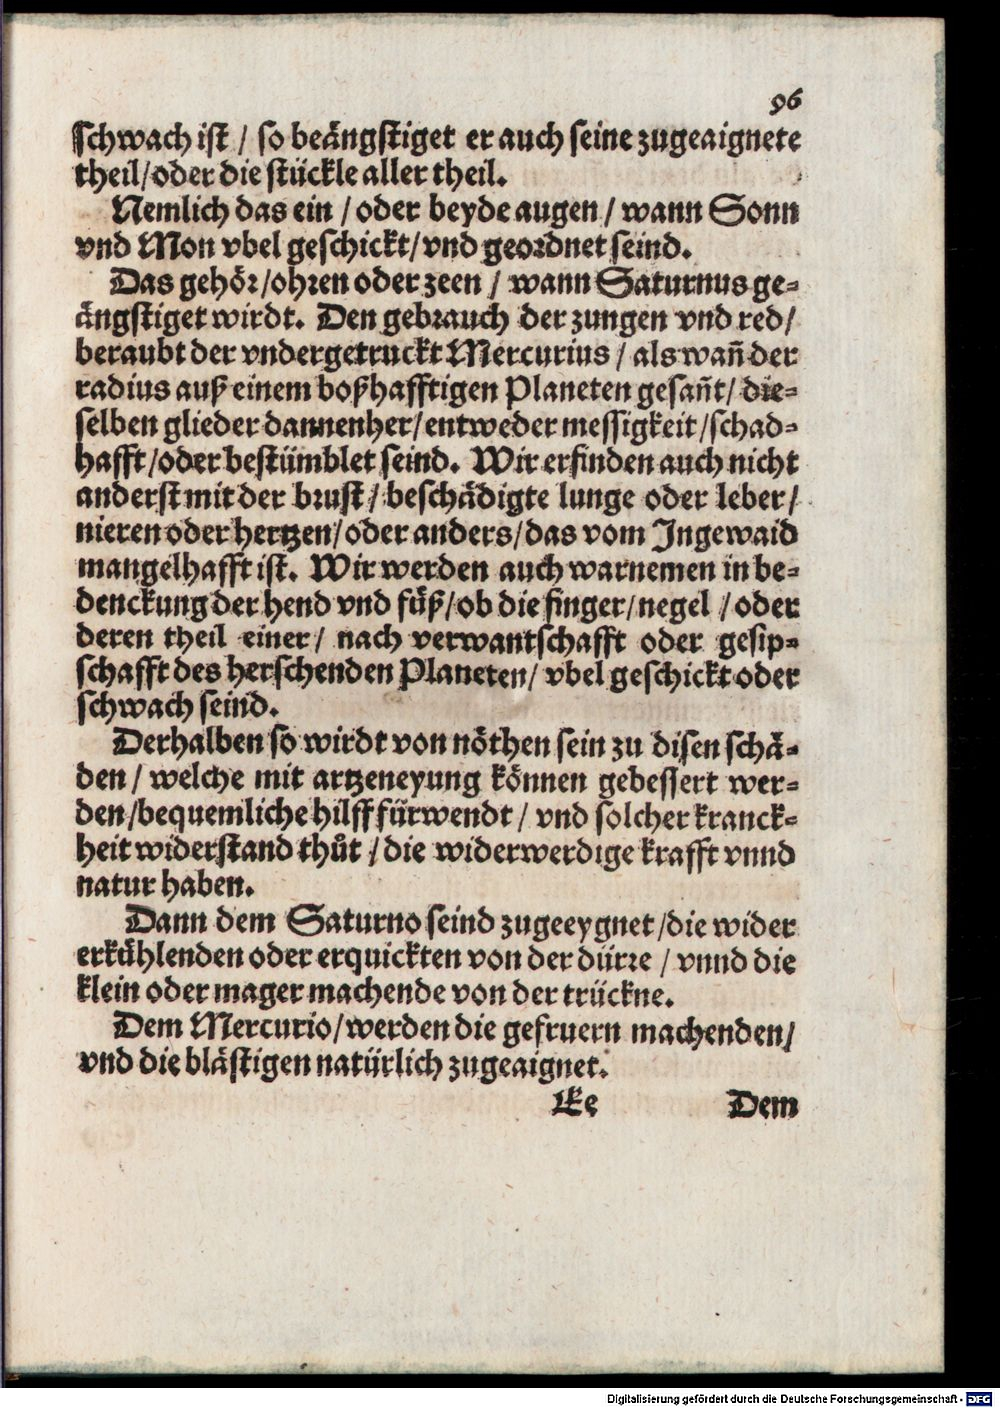 96
schwach ist / so beängstiget er auch seine zugeaignete
theil/oder die stückle aller theil.
Nemlich das ein / oder beyde augen / wann Sonn
vnd Mon vbel geschickt/vnd geordnet seind.
Das gehör/ohren oder zeen / wann Saturnus ge=
ängstiget wirdt. Den gebrauch der zungen vnd red/
beraubt der vndergetruckt Mercurius / als wañ der
radius auß einem boßhafftigen Planeten gesañt/ die=
selben glieder dannenher/entweder messigkeit/schad=
hafft/oder bestümblet seind. Wir erfinden auch nicht
anderst mit der brust/ beschädigte lunge oder leber/
nieren oder hertzen/oder anders/das vom Ingewaid
mangelhafft ist. Wir werden auch warnemen in be=
denckung der hend vnd füß/ob die finger/negel /oder
deren theil einer/ nach verwantschafft oder gesip=
schafft des herschenden Planeten/ vbel geschickt oder
schwach seind.
Derhalben so wirdt von nöthen sein zu disen schä=
den/ welche mit artzeneyung können gebessert wer=
den/bequemliche hilff fürwendt / vnd solcher kranck=
heit widerstand thůt /die widerwerdige krafft vnnd
natur haben.
Dann dem Saturno seind zugeeygnet/die wider
erkühlenden oder erquickten von der dürre / vnnd die
klein oder mager machende von der trückne.
Dem Mercurio/werden die gefruern machenden/
vnd die blästigen natürlich zugeaignet.
Ee Dem
Digitalisierung gefördert durch die Deutsche Forschungsgemeinschaft - DFG